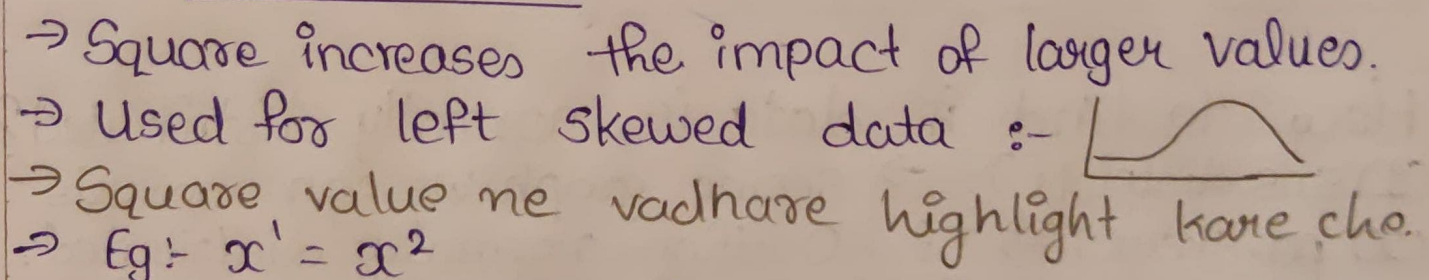 → Square increases the impact of larger values.
→ Used for left skewed data :-
→ Square value ne vadhare highlight kare che.
→ Eg:- x' = x²